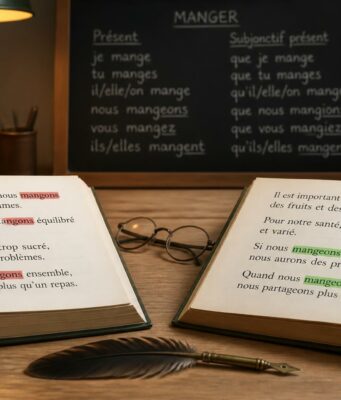 MANGER
Présent
je mange
tu manges
il/elle/on mange
nous mangeons
vous mangez
ils/elles mangent
Subjonctif présent
que je mange
que tu manges
qu'il/elle/on mange
que nous mangions
que vous mangiez
qu'ils/elles mangen
nous mangons
mes.
angons équilibré
trop sucré,
roblèmes.
gons ensemble,
plus qu'un repas.
Il est important
des fruits et des
Pour notre santé,
et varié.
Si nous mangeons
nous aurons des pr
Quand nous mangeo
nous partageons plus